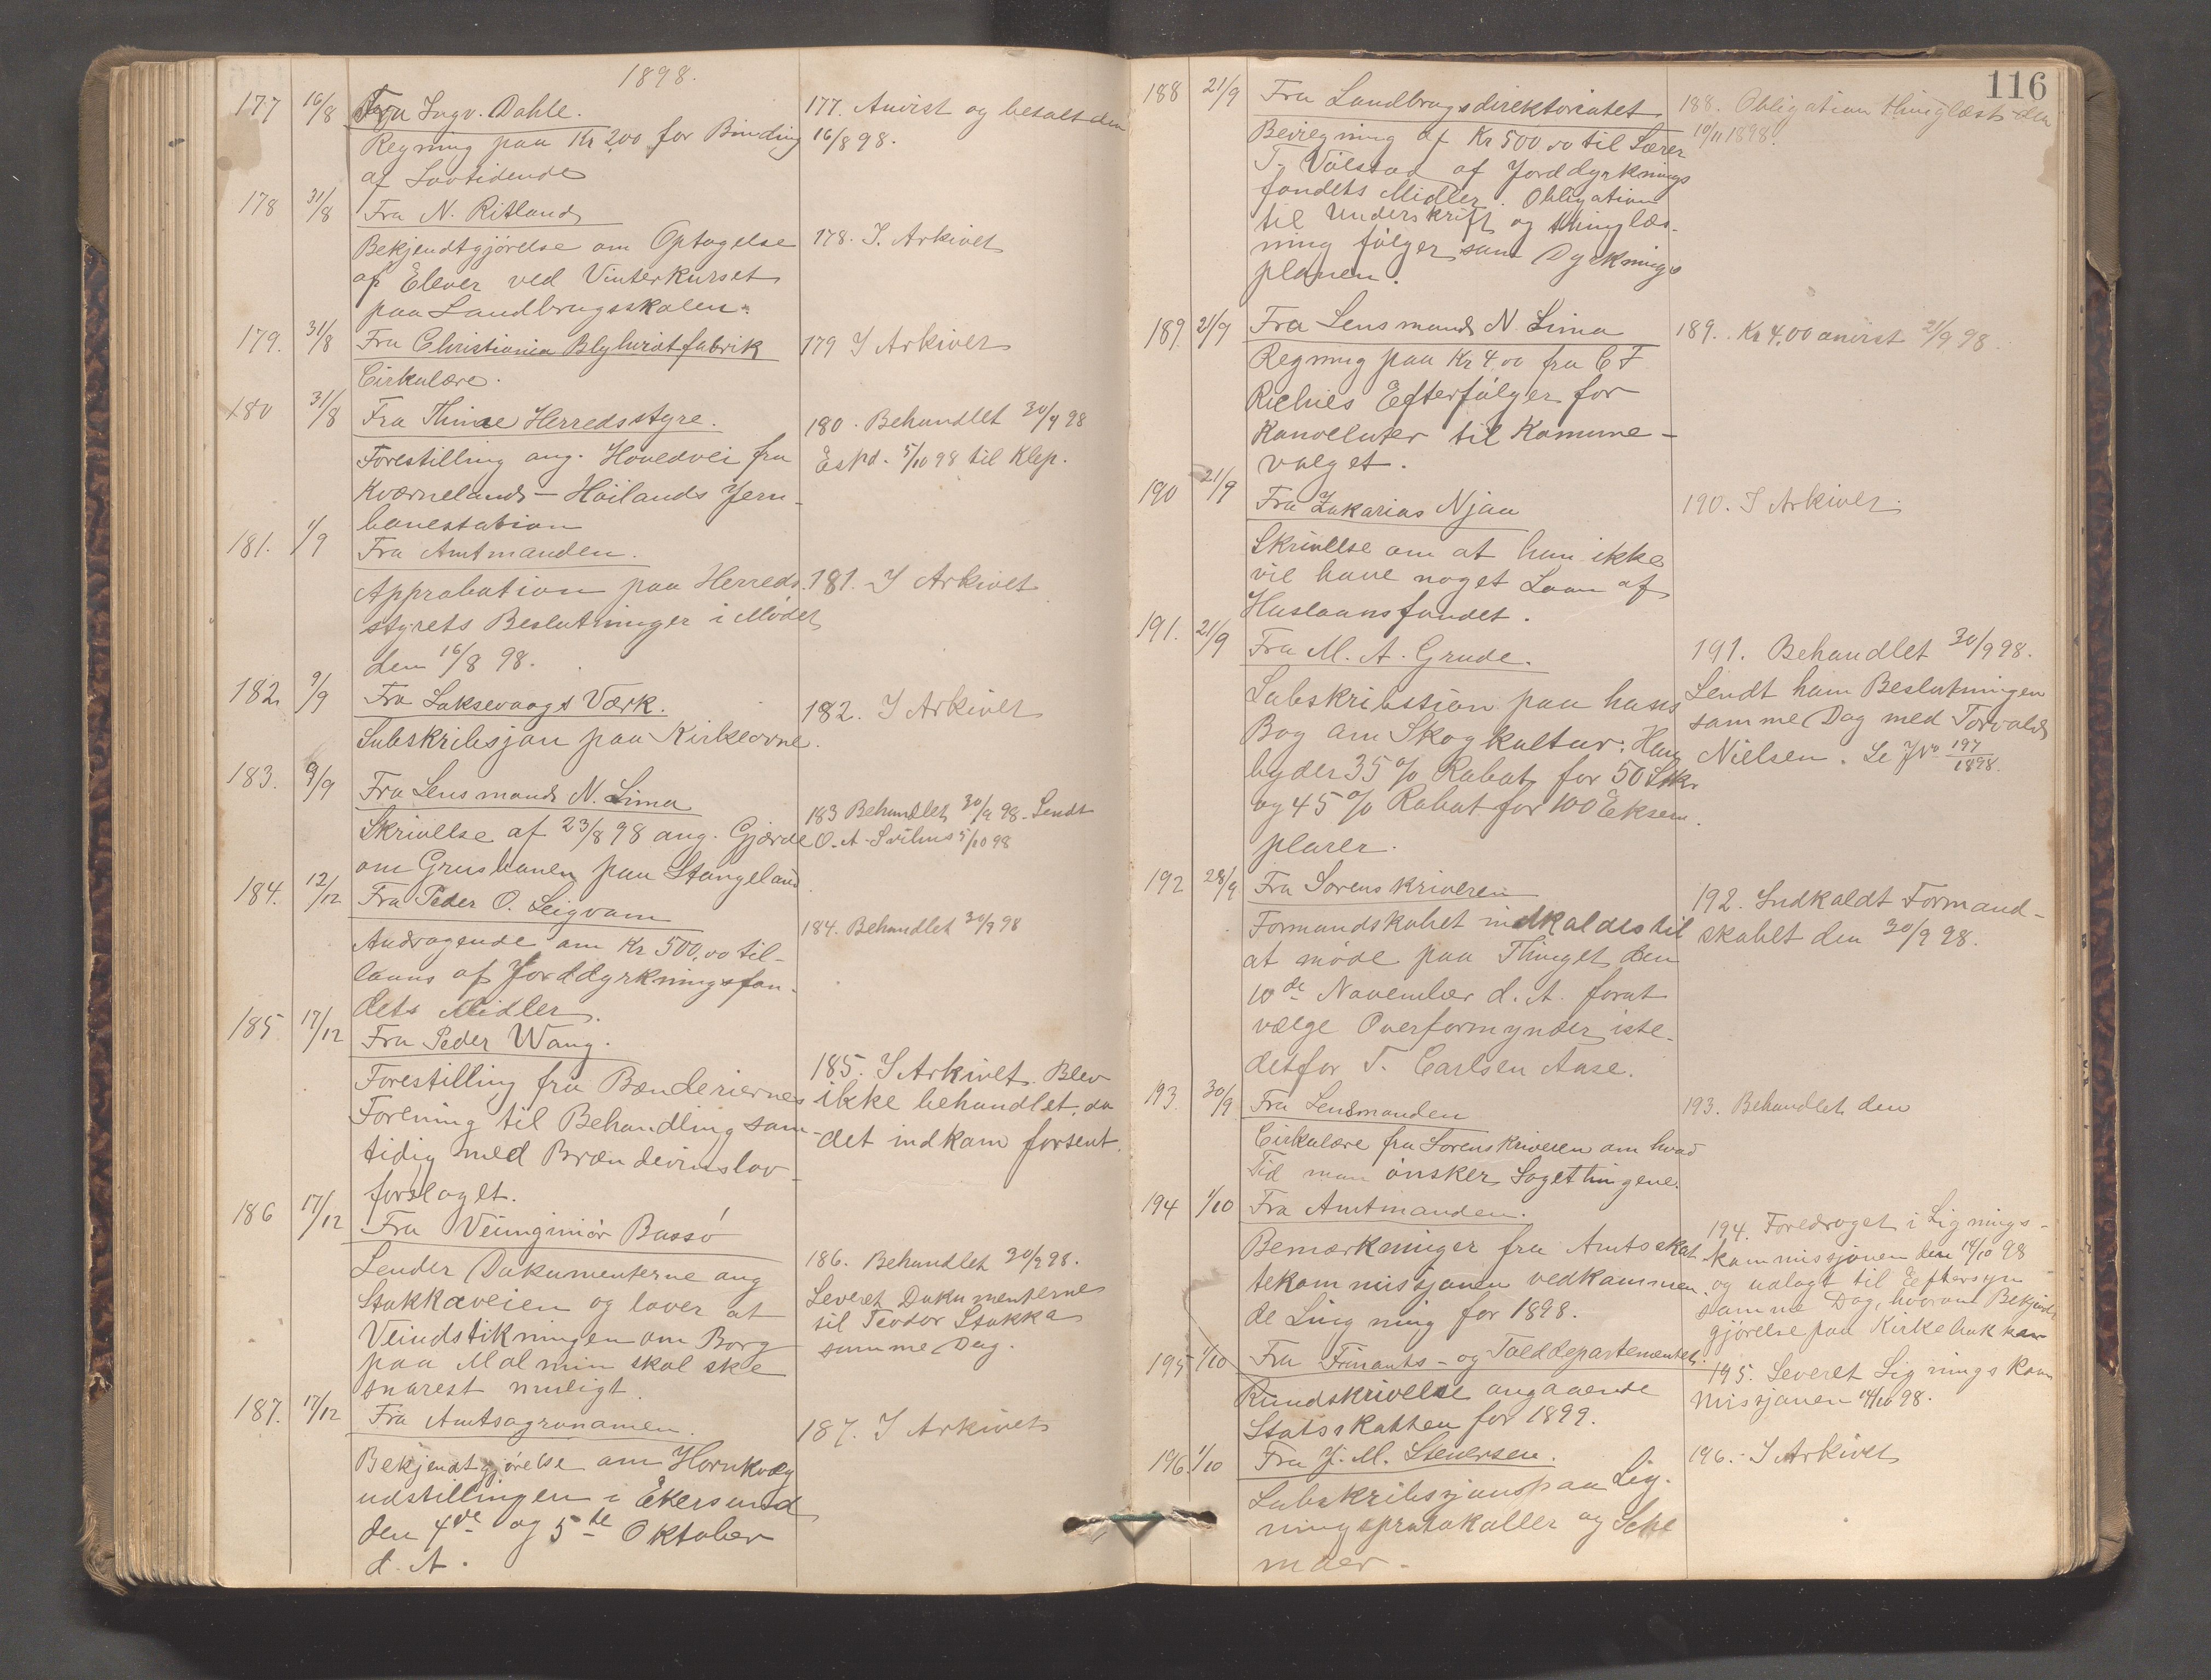 1898.
177 16/8 Fra Ingv. Dahle.
Regning paa Kr 2,00 for Binding
af Lovtidende
177. Anvist og betalt den
16/8 98.
178 31/8 Fra N. Ritland
Bekjendtgjörelse om Optagelse
af Elever ved Vinterkurset
paa Landbrugsskolen.
178. I. Arkivet
179. 31/8 Fra Christiania Blyhvidtfabrik
Cirkulære.
179 I Arkivet
180 31/8 Fra Thime Herredsstyre.
Forestilling ang. Hovedvei fra
Kværneland - Höilands Jern-
banestation
180. Behandlet 30/9 98
Espd. 5/10 98 til Klep.
181. 1/9 Fra Amtmanden.
Approbation paa Herreds
styrets Beslutninger i Mödet
den 16/8 98.
181. I Arkivet
182 9/9 Fra Laksevaags Værk.
Subskribsjon paa Kirkeovne.
182. I Arkivet
183. 9/9 Fra Lensmand N. Lima
Skrivelse af 23/8 98 ang. Gjærde
om Grusbanen paa Stangeland
183 Behandlet 30/9 98. Sendt
O. A. 5/10 98
184. 12/12 Fra Peder O. Leigvam
Andragende om Kr 500,00 til-
laans af Jorddyrkningsfon-
dets Midler.
184. Behandlet 30/9 98
185 17/12 Fra Peder Wang.
Forestilling fra Bænderiernes
Forening til Behandling sam-
tidig med Brændevinslov-
forslaget.
185. I Arkivet. Blev
ikke behandlet, da
det indkom forsent.
186 17/12 Fra Veiingniör Bassö
Sender Dokumenterne ang
Stokkaveien og lover at
Veiudstikningen om Borg
paa Malmin skal ske
snarest muligt.
186. Behandlet 30/9 98.
Leveret Dokumenterne
til Teodor Stokka
samme Dag.
187. 17/12 Fra Amtsagronomen.
Bekjendtgjörelse om Hornkvæg
udstillingen i Ekersund
den 4de og 5te Oktober
d. A.
187. I Arkivet
116
188 21/9 Fra Landbrugsdirektoriatet
Bevregning af Kr 500,00 til Lærer
T. Völstad af Jorddyrknings
fondets Midler. Obligation
til Underskrift og thinglæs-
ning fölger samt Dyrknings
planen.
188. Obligation thinglæst den
10/11 1898.
189. 21/9 Fra Lensmand N. Lima
Regning paa Kr 4,00 fra C F
Efterfölger for
Konvoluter til Komune-
valget.
189. Kr 4,00 anvist 21/9 98
190 21/9 Fra Zakarias Njaa
Skrivelse om at han ikke
vil have noget Laan af
Huslaansfondet.
190. I Arkivet.
191. 21/9 Fra M. A. Grude.
Subskribstion paa hans
Bog om Skogkultur. Han
byder 35 % Rabat for 50 Stk.
og 45 % Rabat for 100 Eksem.
plarer.
191. Behandlet 30/9 98.
Sendt ham Beslutningen
samme Dag med Torvald
Nielsen. Se JNo 197/1898.
192 28/9 Fra Sorenskriveren
Formandskabet indkaldes til
at möde paa Thinget den
10de November d. A. forat
vælge Overformynder iste-
detfor T. Carlsen Aase.
192. Indkaldt Formand-
skabet den 30/9 98.
193. 30/9 Fra Lensmanden
Cirkulære fra Sorenskriveren om hvad
Tid man önsker Sagethingene.
193. Behandlet den
194 1/10 Fra Amtmanden.
Bemærkninger fra Amtsskat
tekommissjonen vedkommen.
de Ligning for 1898.
194. Foredraget i Lignings-
kommissjonen den 14/10 98
og udlagt til Eftersyn
samme Dag, hvorom Bekjendt
gjörelse paa Kirkebak
195 1/10 Fra Finants- og Tolddepartementet.
Rundskrivelse angaaende
Statsskatten for 1899.
195. Leveret Lignings kom
missjonen 14/10 98.
196. 1/10 Fra J. M. Stenersen.
Subskribsjons paa Lig.
ningsprotokoller og Sche
maer.
196. I Arkivet